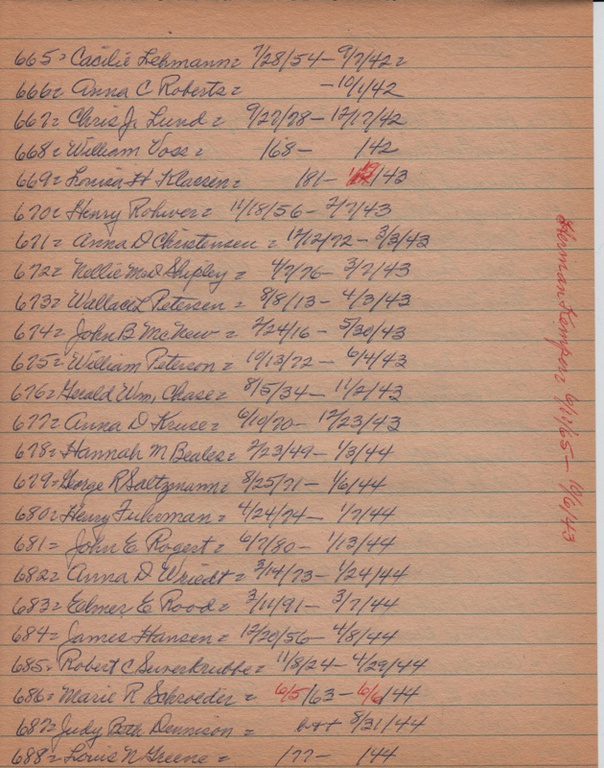 665= Cacilie Lehmann= 7/28/54- 9/7/42=
666= Anna C Roberts= -10/1/42
667= Chris J. Lund= 9/27/78- 12/17/42
668= William Voss= /68- /42
669= Louisa H Klaesen= /81- /43
670= Henry Rohwer= 11/18/56- 2/7/43
671= Anna D Christensen= 12/12/72- 3/3/43
672= Nellie McD Shipley= 4/7/76- 3/7/43
673= Wallace L Petersen= 8/8/13- 4/3/43
674= John B McNew= 2/24/16- 5/30/43
675= William Peterson= 10/13/72- 6/4/43
676= Gerald Wm, Chase= 8/5/34- 11/2/43
677= Anna D Kruse= 6/10/70- 12/23/43
678= Hannah M Beales= 2/23/49- 1/3/44
679= George R Saltzmann= 8/25/71- 1/6/44
680= Henry Fuhrman= 4/24/74- 1/7/44
681= John E Rogert= 6/7/80- 1/13/44
682= Anna D Wriedt= 3/14/73- 1/24/44
683= Elmer E Rood= 3/11/91- 3/7/44
684= James Hansen= 12/20/56- 4/8/44
685= Robert C Suverkrubbe= 11/8/24- 4/29/44
686= Marie R Schroeder= 6/5/63- 6/6/44
687= Judy Beth Dennison= 8/31/44
688= Louis N Greene= /77- /44
Herman Kemper= 6/11/65- 10/6/43